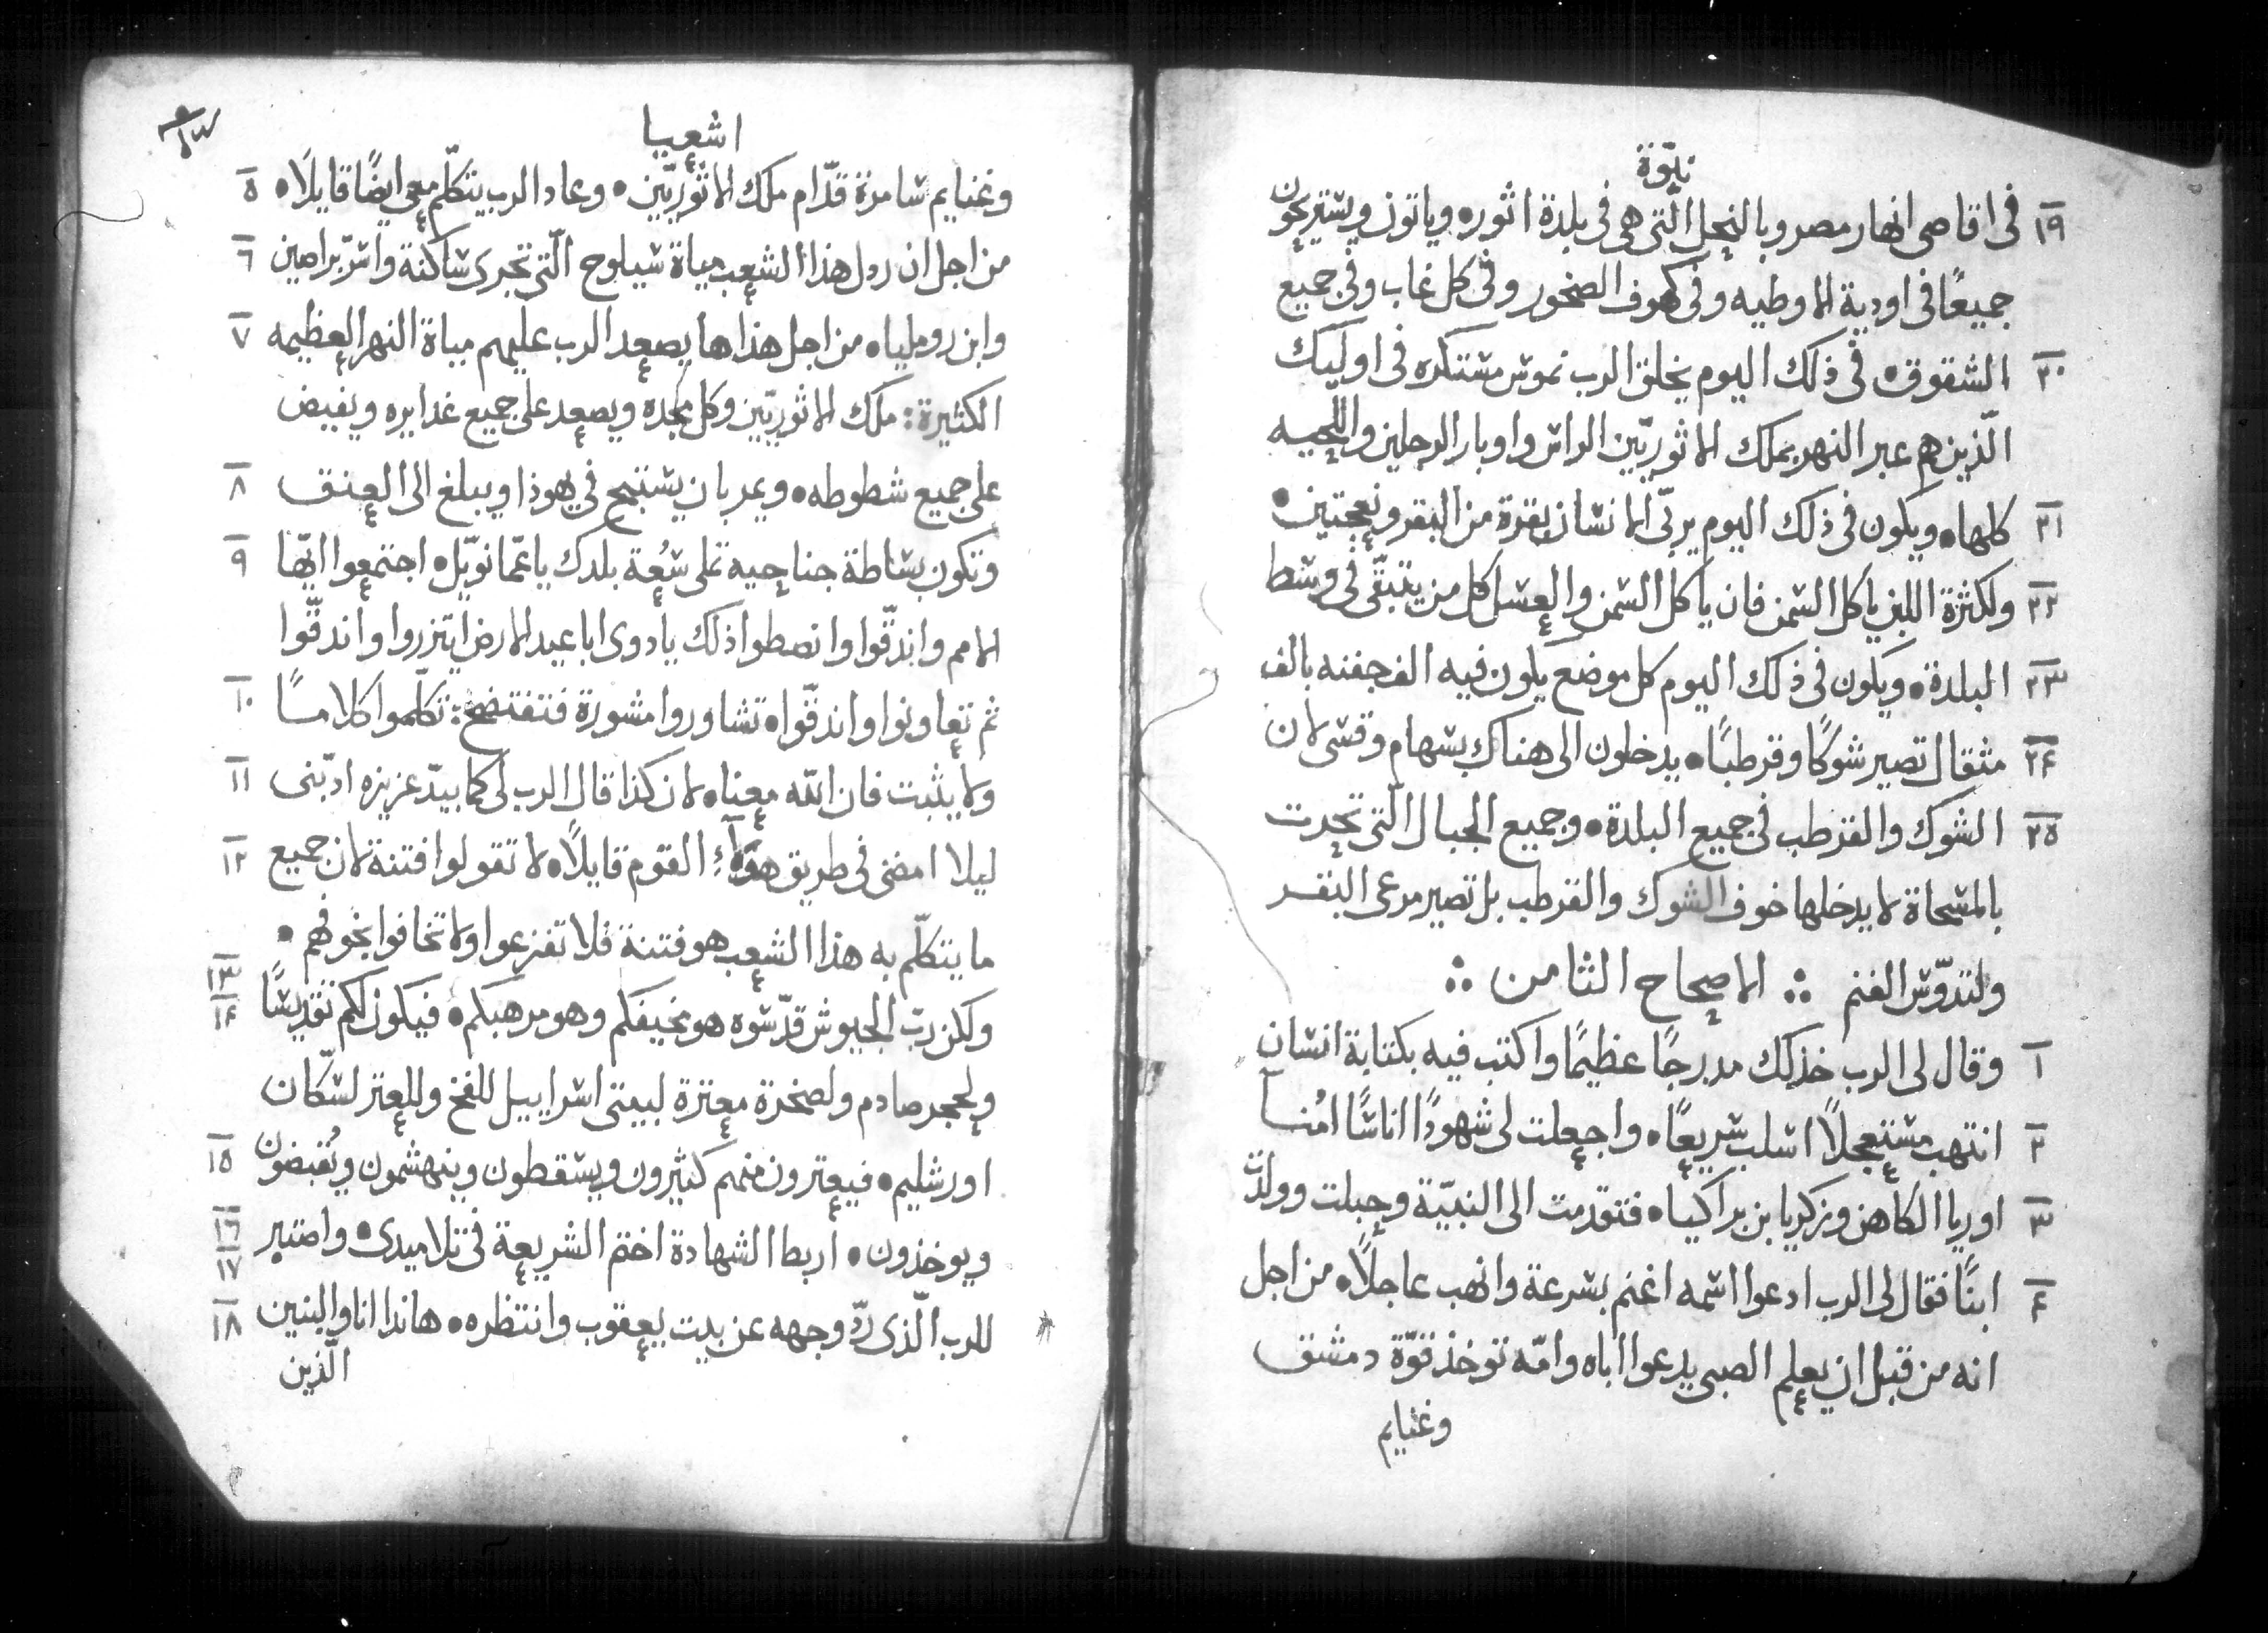 نبّوة
١٩ فى اقاصى انهار مصر وبالنحل الّتى هى فى بلدة اثور ٥ وياتون ويشتريحون
جميعًا فى اودية الاوطيه وفى كهوف الصخور وفى كل غاب وفى جميع
٢٠ الشقوق ٥ فى ذلك اليوم يحلق الرب بموس مستكره فى اوليك
الّذين هم عبر النهر بملك الاثوريّين الراس واوبار الرجلين واللحيه
٢١ كلها ٥ ويكون فى ذلك اليوم يربّى الانسان بقرة من البقر ونعجتين ٥
٢٢ ولكثرة اللبن ياكل السمن فان ياكل السمن والعسل كل من يتبقّى فى وسط
٢٣ البلدة ٥ ويكون فى ذلك اليوم كل موضع يكون فيه الف جفنه بالف
٢٤ مثقال تصير شوكًا وقرطبًا ٥ يدخلون الى هناك بسهام وقسى لان
٢٥ الشوك والقرطب فى جميع البلدة ٥ وجميع الجبال الّتى تحرت
بالمسحاة لا يدخلها خوف الشوك والقرطب بل تصير مرعى البقر
ولتدوّس الغنم ∴ الاصحاح الثامن ∴
١ وقال لى الرب خذ لك مدرجًا عظيمًا واكتب فيه بكتابة انسان
٢ انتهب مستعجلاً اسلب سريعًا ٥ واجعلت لى شهودًا اناسًا امُنا
٣ اوريا الكاهن وزكريا بن براكيا ٥ فتقدمت الى النبيّة وحبلت وولدت
٤ ابنًا فقال لى الرب ادعوا اسمه اغنم بسرعة وانهب عاجلاً ٥ من اجل
انه من قبل ان يعلم الصبى يدعوا اباه وامّه توخذ قوّة دمشق
وغنايم
اشعيا
وغنايم سامرة قدّام ملك الاثوريّين ٥ وعاد الرب يتكلّم معى ايضًا قايلاً ٥ ٥
من اجل ان رذل هذا الشعب مياة سيلوح الّتى تجرى ساكنة واسرّ براصين ٦
وابن روماليا ٥ من اجل هذا ها يصعد الرب عليهم مياة النهر العظيمه ٧
الكثيرة : ملك الاثوريّين وكل مجده ويصعد على جميع غدايره ويفيض
على جميع شطوطه ٥ ويمر بان يستبيح فى يهوذا ويبلغ الى العنق ٨
وتكون بساطة جناحيه تملى سُعة بلدك يا عمّانويّل ٥ اجتمعوا ايّها ٩
الامم واندقّوا وانصطوا ذلك يا دوى اباعيد الارض اتزروا واندقّوا
ثم تعاونوا واندقّوا ٥ تشاوروا مشورة فتفتضح : تكلّموا كلامًا ١٠
ولا يثبت فان اللّه معنا ٥ لان كذا قال الرب لى كما بيدّ عزيزه ادبّنى ١١
ليلا امضى فى طريق هوّلآءِ القوم قايلاً ٥ لا تقولوا فتنة لان جميع ١٢
ما يتكلّم به هذا الشعب هو فتنة فلا تفزعوا ولا تخافوا بخوفهم ٥
ولكن ربّ الجيوش قدّسوه هو مخيفكم وهو مرهبكم ٥ فيكون لكم تقديسًا ١٣ ١٤
ولحجر صادم ولصخرة معترة لبيتى اسراييل للفخ وللعتر لسّكان
اورشليم ٥ فيعترون منهم كثيرون ويسقطون وينهشمون ويُقبضون ١٥
ويوخذون ٥ اربط الشهادة اختم الشريعة فى تلاميدى ٥ واصتبر ١٦ ١٧
للرب الّذى ردّ وجهه عن بيت يعقوب وانتظره ٥ هاندا انا والبنين ١٨
الّذين